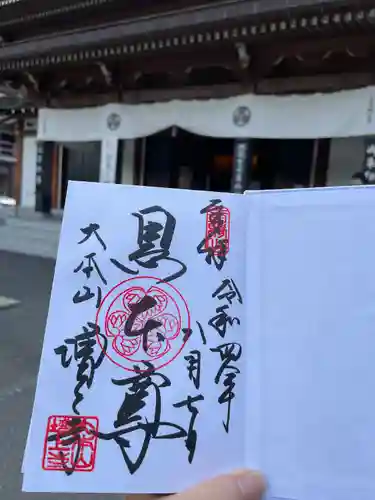 奉拝
令和四年
八月七日
黒本尊
大本山
増上寺